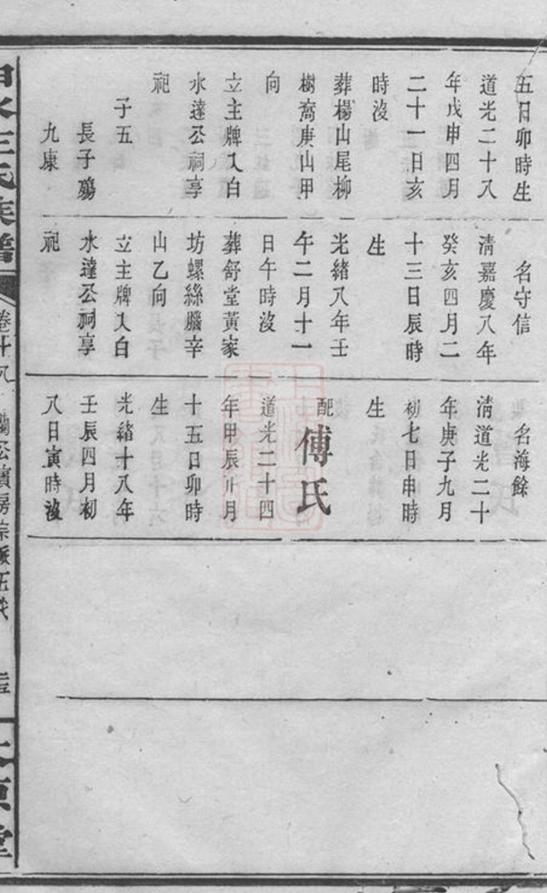 五日卯時生
道光二十八
年戊申四月
二十一日亥
時沒
葬楊山尾柳
樹窩庚山甲
向
立主牌入白
水達公祠享
祀
子五
長子殤
九康
名守信
清嘉慶八年
癸亥四月二
十三日辰時
生
光緒八年壬
午二月十一
日午時沒
葬舒堂黃家
坊螺絲腦辛
山乙向
立主牌入白
水達公祠享
祀
名海餘
清道光二十
年庚子九月
初七日申時
生
配傅氏
道光二十四
年甲辰正月
十五日卯時
生
光緒十八年
壬辰四月初
八日寅時沒
王氏族譜
卷十八
公賓房
堂